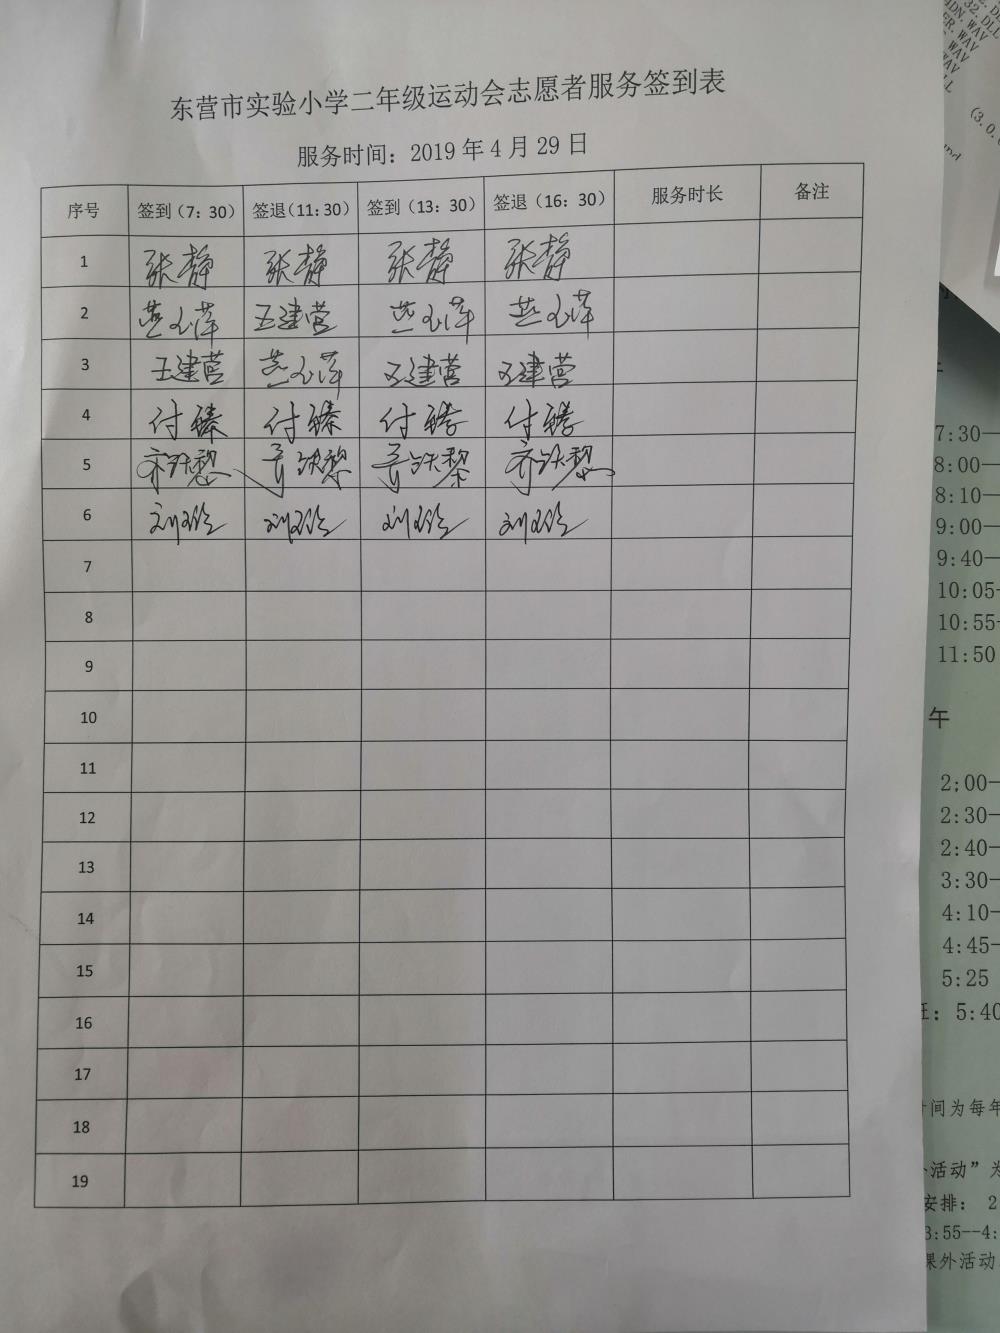 东营市实验小学二年级运动会志愿者服务签到表
服务时间：2019 年 4 月 29 日
序号 签到（7：30） 签退（11：30） 签到（13：30） 签退（16：30） 服务时长 备注
1 张静 张静 张静 张静
2 燕玉萍 王建营 燕玉萍 燕玉萍
3 王建营 燕玉萍 王建营 王建营
4 付臻 付臻 付臻 付臻
5
6 刘玲 刘玲 刘玲 刘玲
7
8
9
10
11
12
13
14
15
16
17
18
19
HDN.WAV
32.DLL
ER.WAV
.WAV
WAV
LL
(3.0.
und
7:30—
8:00—
8:10—
9:00—
9:40—
10:05-
10:55-
11:50
午
2;00—
2:30—
2:40—
3:30—
4:10—
4:45—
5:25
班：5:40
时间为每年
外活动”为
安排： 2
3:55--4:
课外活动